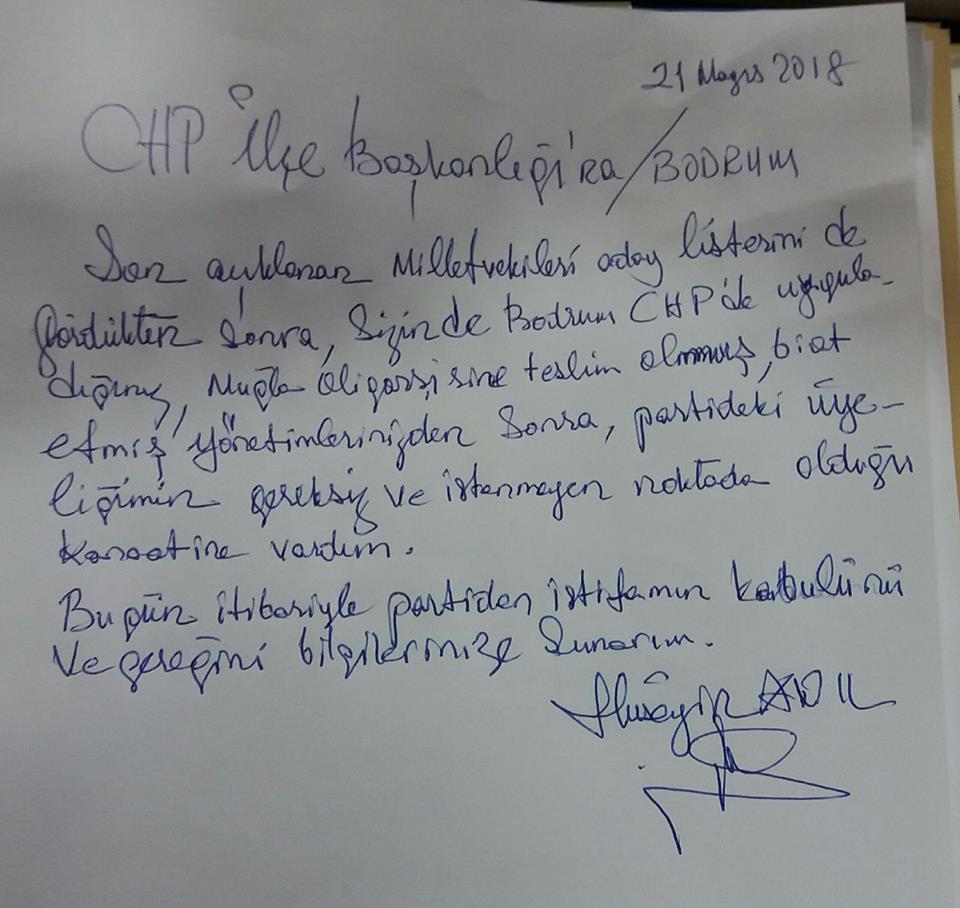 21 Mayıs 2018
CHP İlçe Başkanlığı'na/BODRUM
Son açıklanan Milletvekileri aday listenizi de
gördükten sonra, Sizin de Bodrum CHP'de uygula-
dığınız, Muğla oligarşisine teslim olmmuş, biat
etmiş yönetimlerinizden sonra, partideki üye-
liğimin gereksiz ve istenmeyen noktada olduğu
kanaatine vardım.
Bugün itibariyle partiden istifamın kabulünü
ve gereğini bilgilerinize sunarım.
Hüseyin